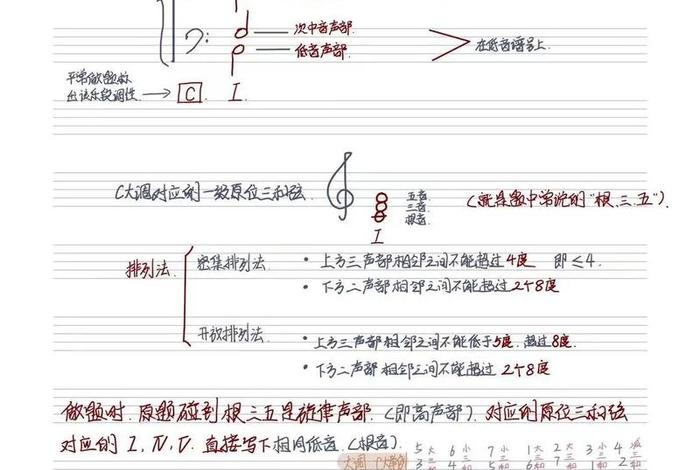 次中音声部
低音声部
在低音谱号上
平常做题标
出该乐段调性
C I
C大调对应的一级原位三和弦
五音
三音
根音
(就是题中常说的"根.三.五").
I
排列法.
密集排列法
· 上方三声部相邻之间不能超过4度 即≤4.
· 下方二声部相邻之间不能超过2个8度
开放排列法
· 上方三声部相邻之间不能低于5度.超过8度.
· 下方二声部相邻之间不能超过2个8度
做题时.原题碰到根三五是旋律声部.(即高声部).对应的原位三和弦
对应的 I, IV, V. 直接写下相同低音.(根音).
5 小 6 小 7 小 1 大 2 大 3 小 4 减
大调 C举例